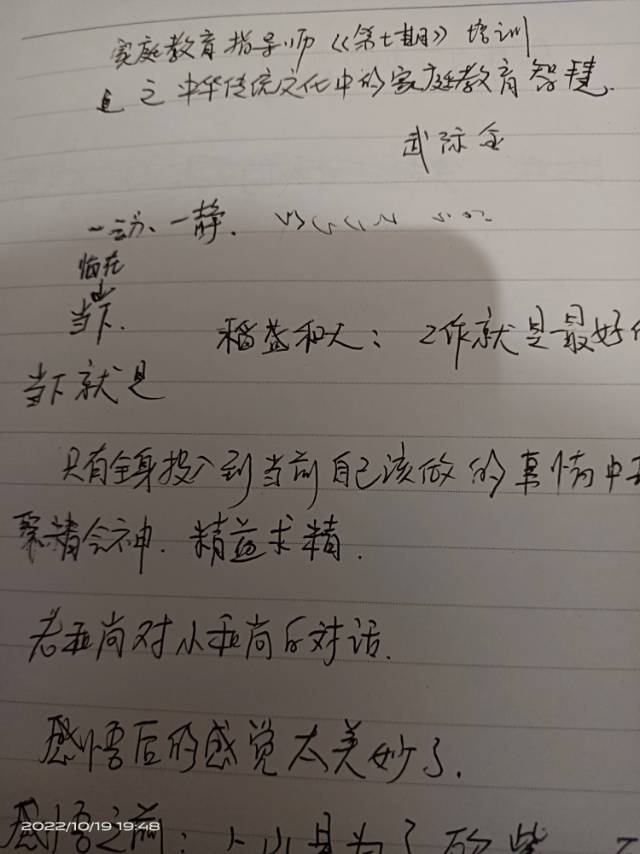 家庭教育指导师《第七期》培训
之中华传统文化中的家庭教育智慧.
武际金
一动、一静.
临在
当下.
稻盛和夫：工作就是最好
当下就是
只有全身投入到当前自己该做的事情中去
聚精会神. 精益求精.
老和尚对小和尚的对话.
感悟后的感觉太美妙了.
感悟之前：
2022/10/19 19:48